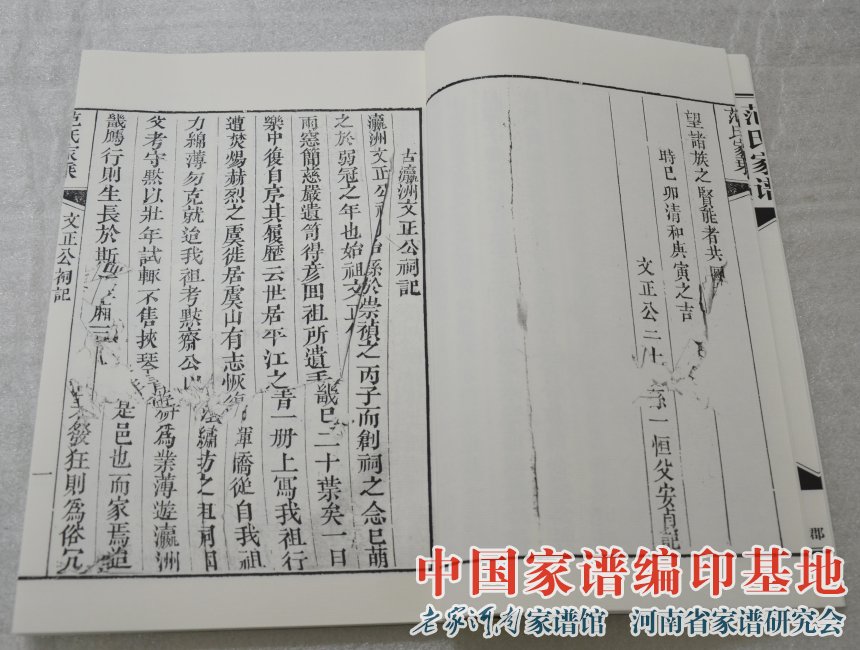 范氏家谱
范氏家乘
望諸族之賢能者共
時巳卯清和與寅之吉
文正公二十 孫一恒父安貞記
郡
古瀛洲文正公祠記
瀛洲文正公祠 係於崇禎之丙子而創祠之念巳萌
之於弱冠之年也始祖文正 畿巳二十葉矣一日
雨窓簡慈嚴遺笥得彦囬祖所遺手 一册上寫我祖行
樂中復自序其履歷云世居平江之 之祖祠因
遭焚煬赫烈之虞徙居虞山有志恢復 僑從自我祖
力綿薄勿克就迨我祖考㸃齋公以 繡坊
父考守㸃以壯年試輒不售挾琴 爲業薄遊瀛洲
畿鳩行則生長於斯 厢三 是邑也而家焉迨
發狂則爲俗冗
范氏家乘
文正公祠記
一
中国家谱编印基地
老家河南家谱馆 河南省家谱研究会